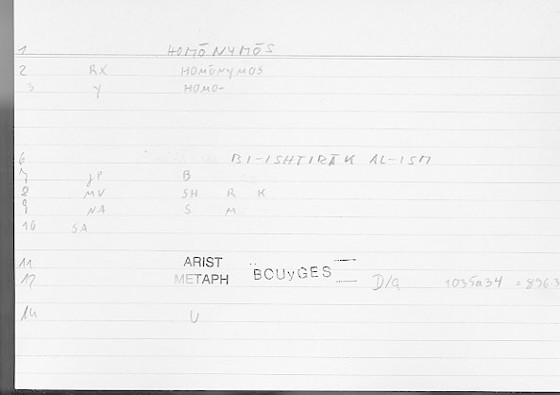 1 HOMŌNYMŌS
2 RX HOMŌNYMOS
3 Y HOMO-
6 BI-ISHTIRĀK AL-ISM
7 JP B
8 MV SH R K
9 NA S M
10 SA
11 ARIST
12 METAPH BOUyGES D/G 1035a34 = 896.3
14 U